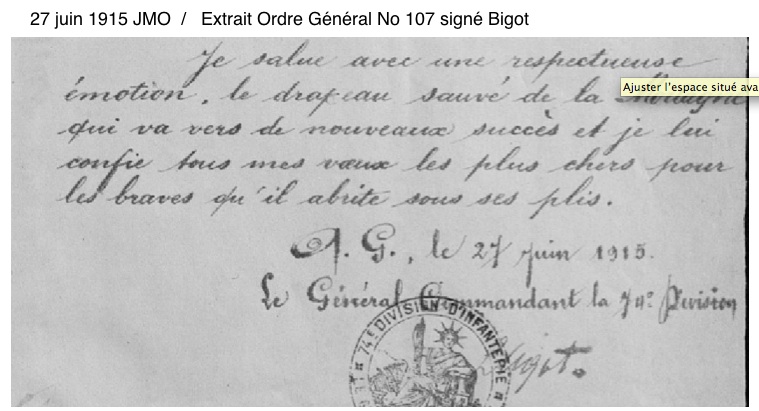 27 juin 1915 JMO / Extrait Ordre Général No 107 signé Bigot
Je salue avec une respectueuse
émotion, le drapeau sauvé de la
Ajuster l'espace situé ava
qui va vers de nouveaux succès et je lui
confie tous mes vœux les plus chers pour
les braves qu'il abrite sous ses plis.
Q. G., le 27 juin 1915.
Le Général Commandant la 74e Division
74e DIVISION D'INFANTERIE
Bigot.